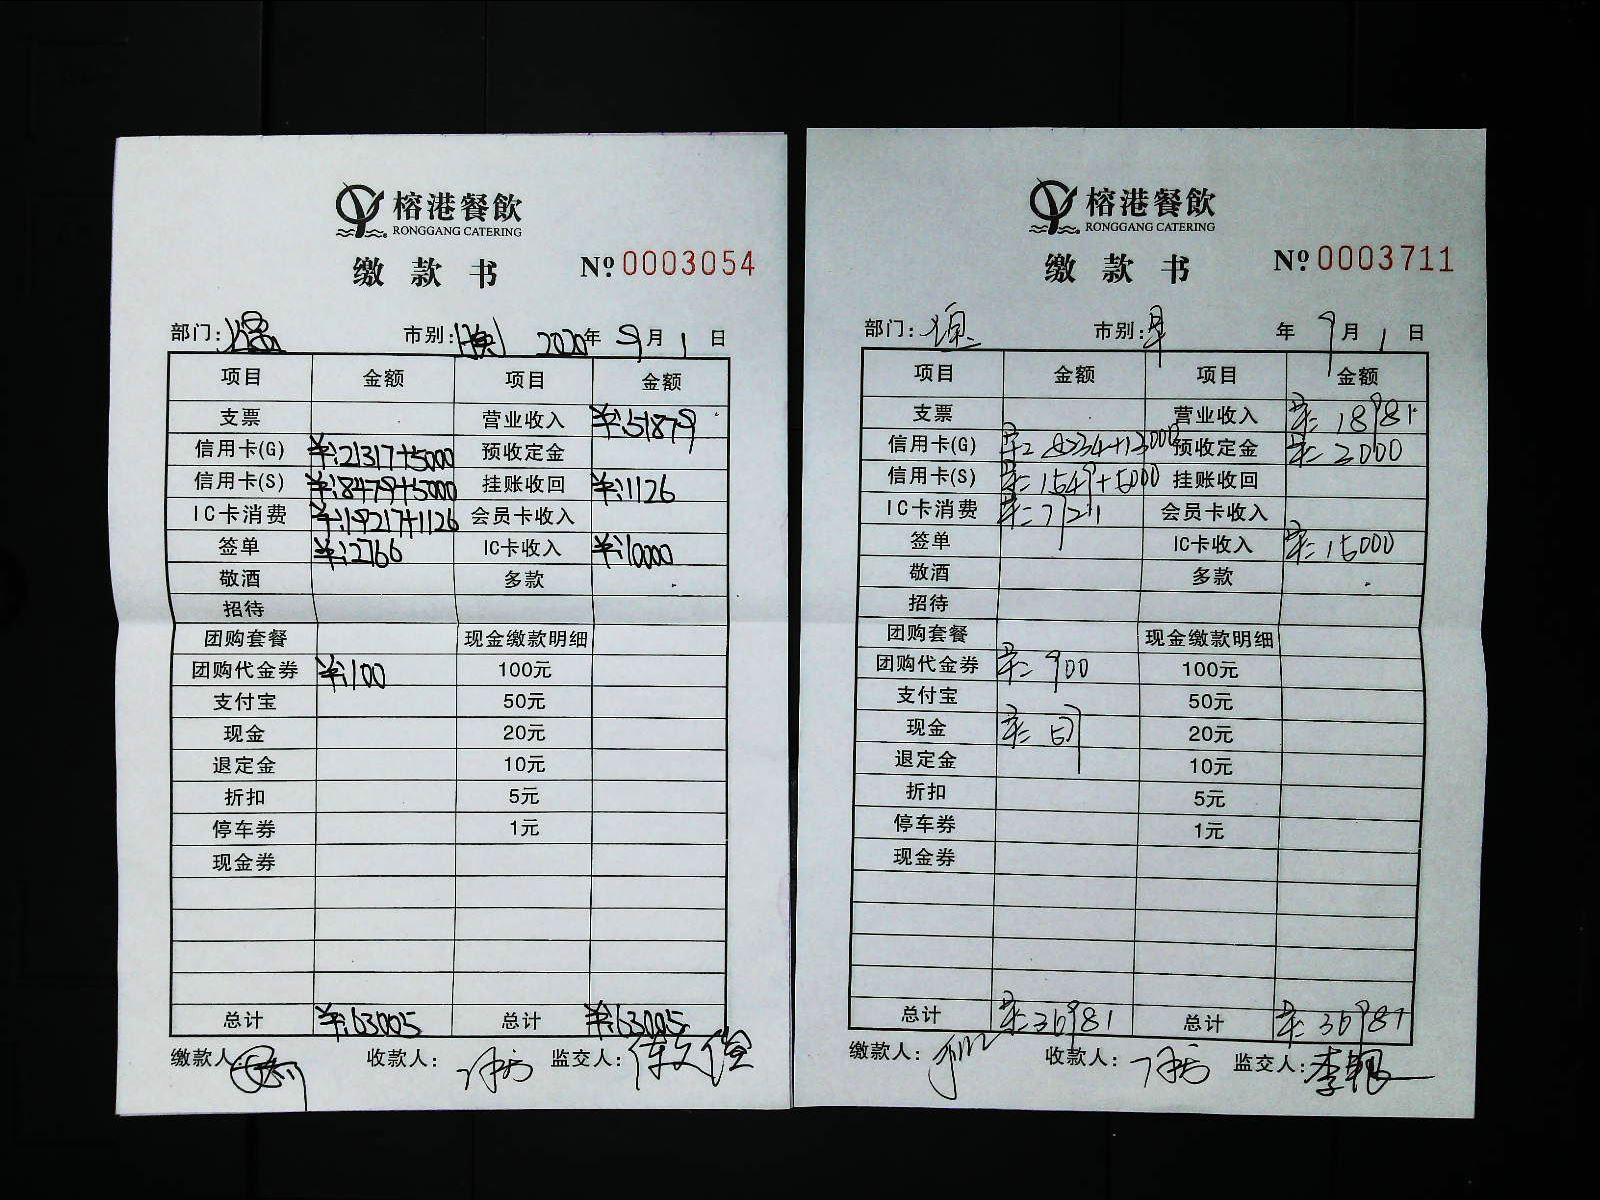 榕港餐飲
RONGGANG CATERING
缴款书 № 0003054
部门: 市别: 2020年 9月 1日
项目 金额 项目 金额
支票 营业收入 ¥:51879
信用卡(G) ¥:21317+5000 预收定金
信用卡(S) ¥:8479+5000 挂账收回 ¥:1126
IC卡消费 ¥:19217+1126 会员卡收入
签单 ¥:2766 IC卡收入 ¥:10000
敬酒 多款
招待
团购套餐 现金缴款明细
团购代金券 ¥:100 100元
支付宝 50元
现金 20元
退定金 10元
折扣 5元
停车券 1元
现金券
总计 ¥:63005 总计 ¥:63005
缴款人: 收款人: 监交人:
榕港餐飲
RONGGANG CATERING
缴款书 № 0003711
部门: 市别: 年 9月 1日
项目 金额 项目 金额
支票 营业收入 ¥: 18981
信用卡(G) 预收定金 ¥: 2000
信用卡(S) ¥: 1549+5000 挂账收回
IC卡消费 会员卡收入
签单 IC卡收入 ¥: 15000
敬酒 多款
招待
团购套餐 现金缴款明细
团购代金券 ¥: 900 100元
支付宝 50元
现金 20元
退定金 10元
折扣 5元
停车券 1元
现金券
总计 ¥: 35981 总计 ¥: 35981
缴款人: 收款人: 监交人: